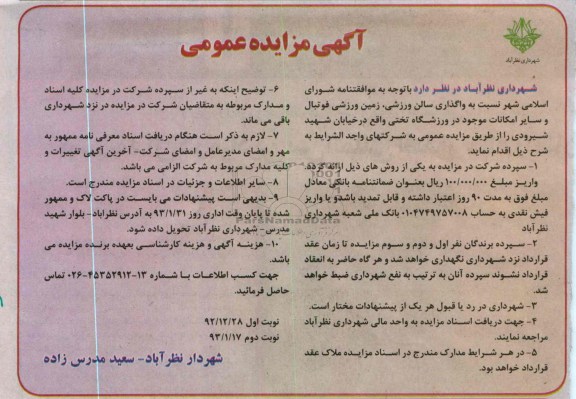 آگهی مزایده عمومی
شهرداری نظرآباد
شهرداری نظرآباد در نظر دارد باتوجه به موافقتنامه شورای
اسلامی شهر نسبت به واگذاری سالن ورزشی، زمین ورزشی فوتبال
و سایر امکانات موجود در ورزشگاه تختی واقع درخیابان شهید
شیرودی را از طریق مزایده عمومی به شرکتهای واجد الشرایط به
شرح ذیل اقدام نماید.
۱- سپرده شرکت در مزایده به یکی از روش های ذیل ارائه گردد.
واریز مبلغ ۱۰۰/۰۰۰/۰۰۰ ریال بعنوان ضمانتنامه بانکی معادل
مبلغ فوق به مدت ۹۰ روز اعتبار داشته و قابل تمدید باشدو یا واریز
فیش نقدی به حساب ۰۱۰۴۷۴۹۷۵۷۰۰۸ بانک ملی شعبه شهرداری
نظرآباد
۲- سپرده برندگان نفر اول و دوم و سوم مزایده تا زمان عقد
قرارداد نزد شهرداری نگهداری خواهد شد و هر گاه حاضر به انعقاد
قرارداد نشوند سپرده آنان به ترتیب به نفع شهرداری ضبط خواهد
شد.
۳- شهرداری در رد یا قبول هر یک از پیشنهادات مختار است.
۴- جهت دریافت اسناد مزایده به واحد مالی شهرداری نظرآباد
مراجعه نمایند.
۵- در هر شرایط مدارک مندرج در اسناد مزایده ملاک عقد
قرارداد خواهد بود.
۶- توضیح اینکه به غیر از سپرده شرکت در مزایده کلیه اسناد
و مدارک مربوطه به متقاضیان شرکت در مزایده در نزد شهرداری
باقی می ماند.
۷- لازم به ذکر است هنگام دریافت اسناد معرفی نامه ممهور به
مهر و امضای مدیرعامل و امضای شرکت- آخرین آگهی تغییرات و
کلیه مدارک مربوط به شرکت الزامی می باشد.
۸- سایر اطلاعات و جزئیات در اسناد مزایده مندرج است.
۹- بدیهی است پیشنهادات می بایست در پاکت لاک و ممهور
شده تا پایان وقت اداری روز ۹۳/۱/۳۱ به آدرس نظراباد- بلوار شهید
مدرس- شهرداری نظرآباد تحویل داده شود.
۱۰- هزینه آگهی و هزینه کارشناسی بعهده برنده مزایده می
باشد.
جهت کسب اطلاعات با شماره ۱۳-۴۵۳۵۲۹۱۲-۰۲۶ تماس
حاصل فرمائید.
نوبت اول ۹۲/۱۲/۲۸
نوبت دوم ۹۳/۱/۱۷
شهردار نظرآباد- سعید مدرس زاده
ParsNamadData